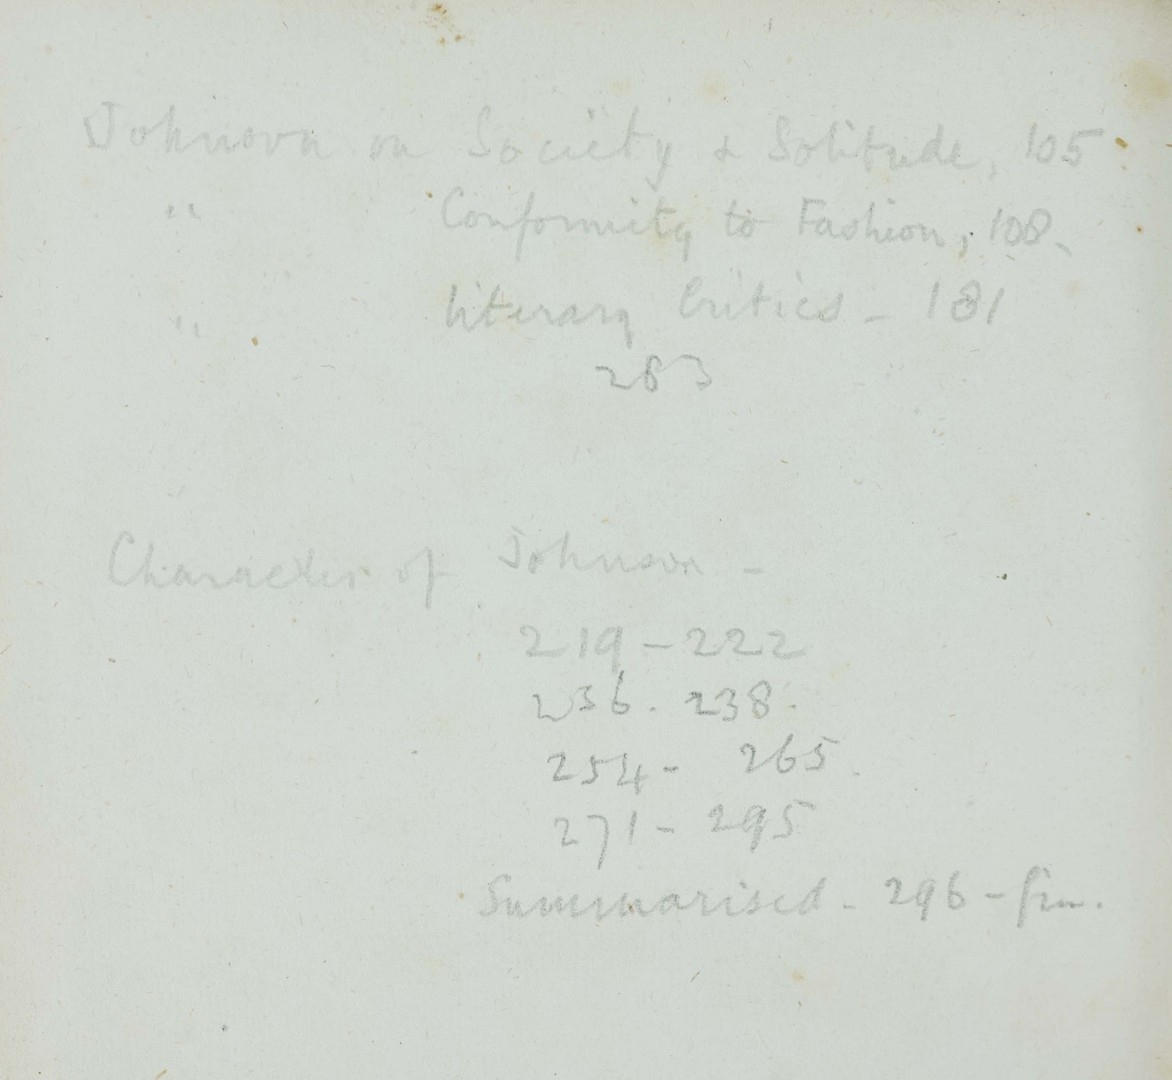 Johnson on Society & Solitude, 105
" Conformity to Fashion, 108.
" literary Critics - 181
283
Character of Johnson -
219 - 222
236 - 238.
254 - 265.
271 - 295
Summarised - 296 - fin.